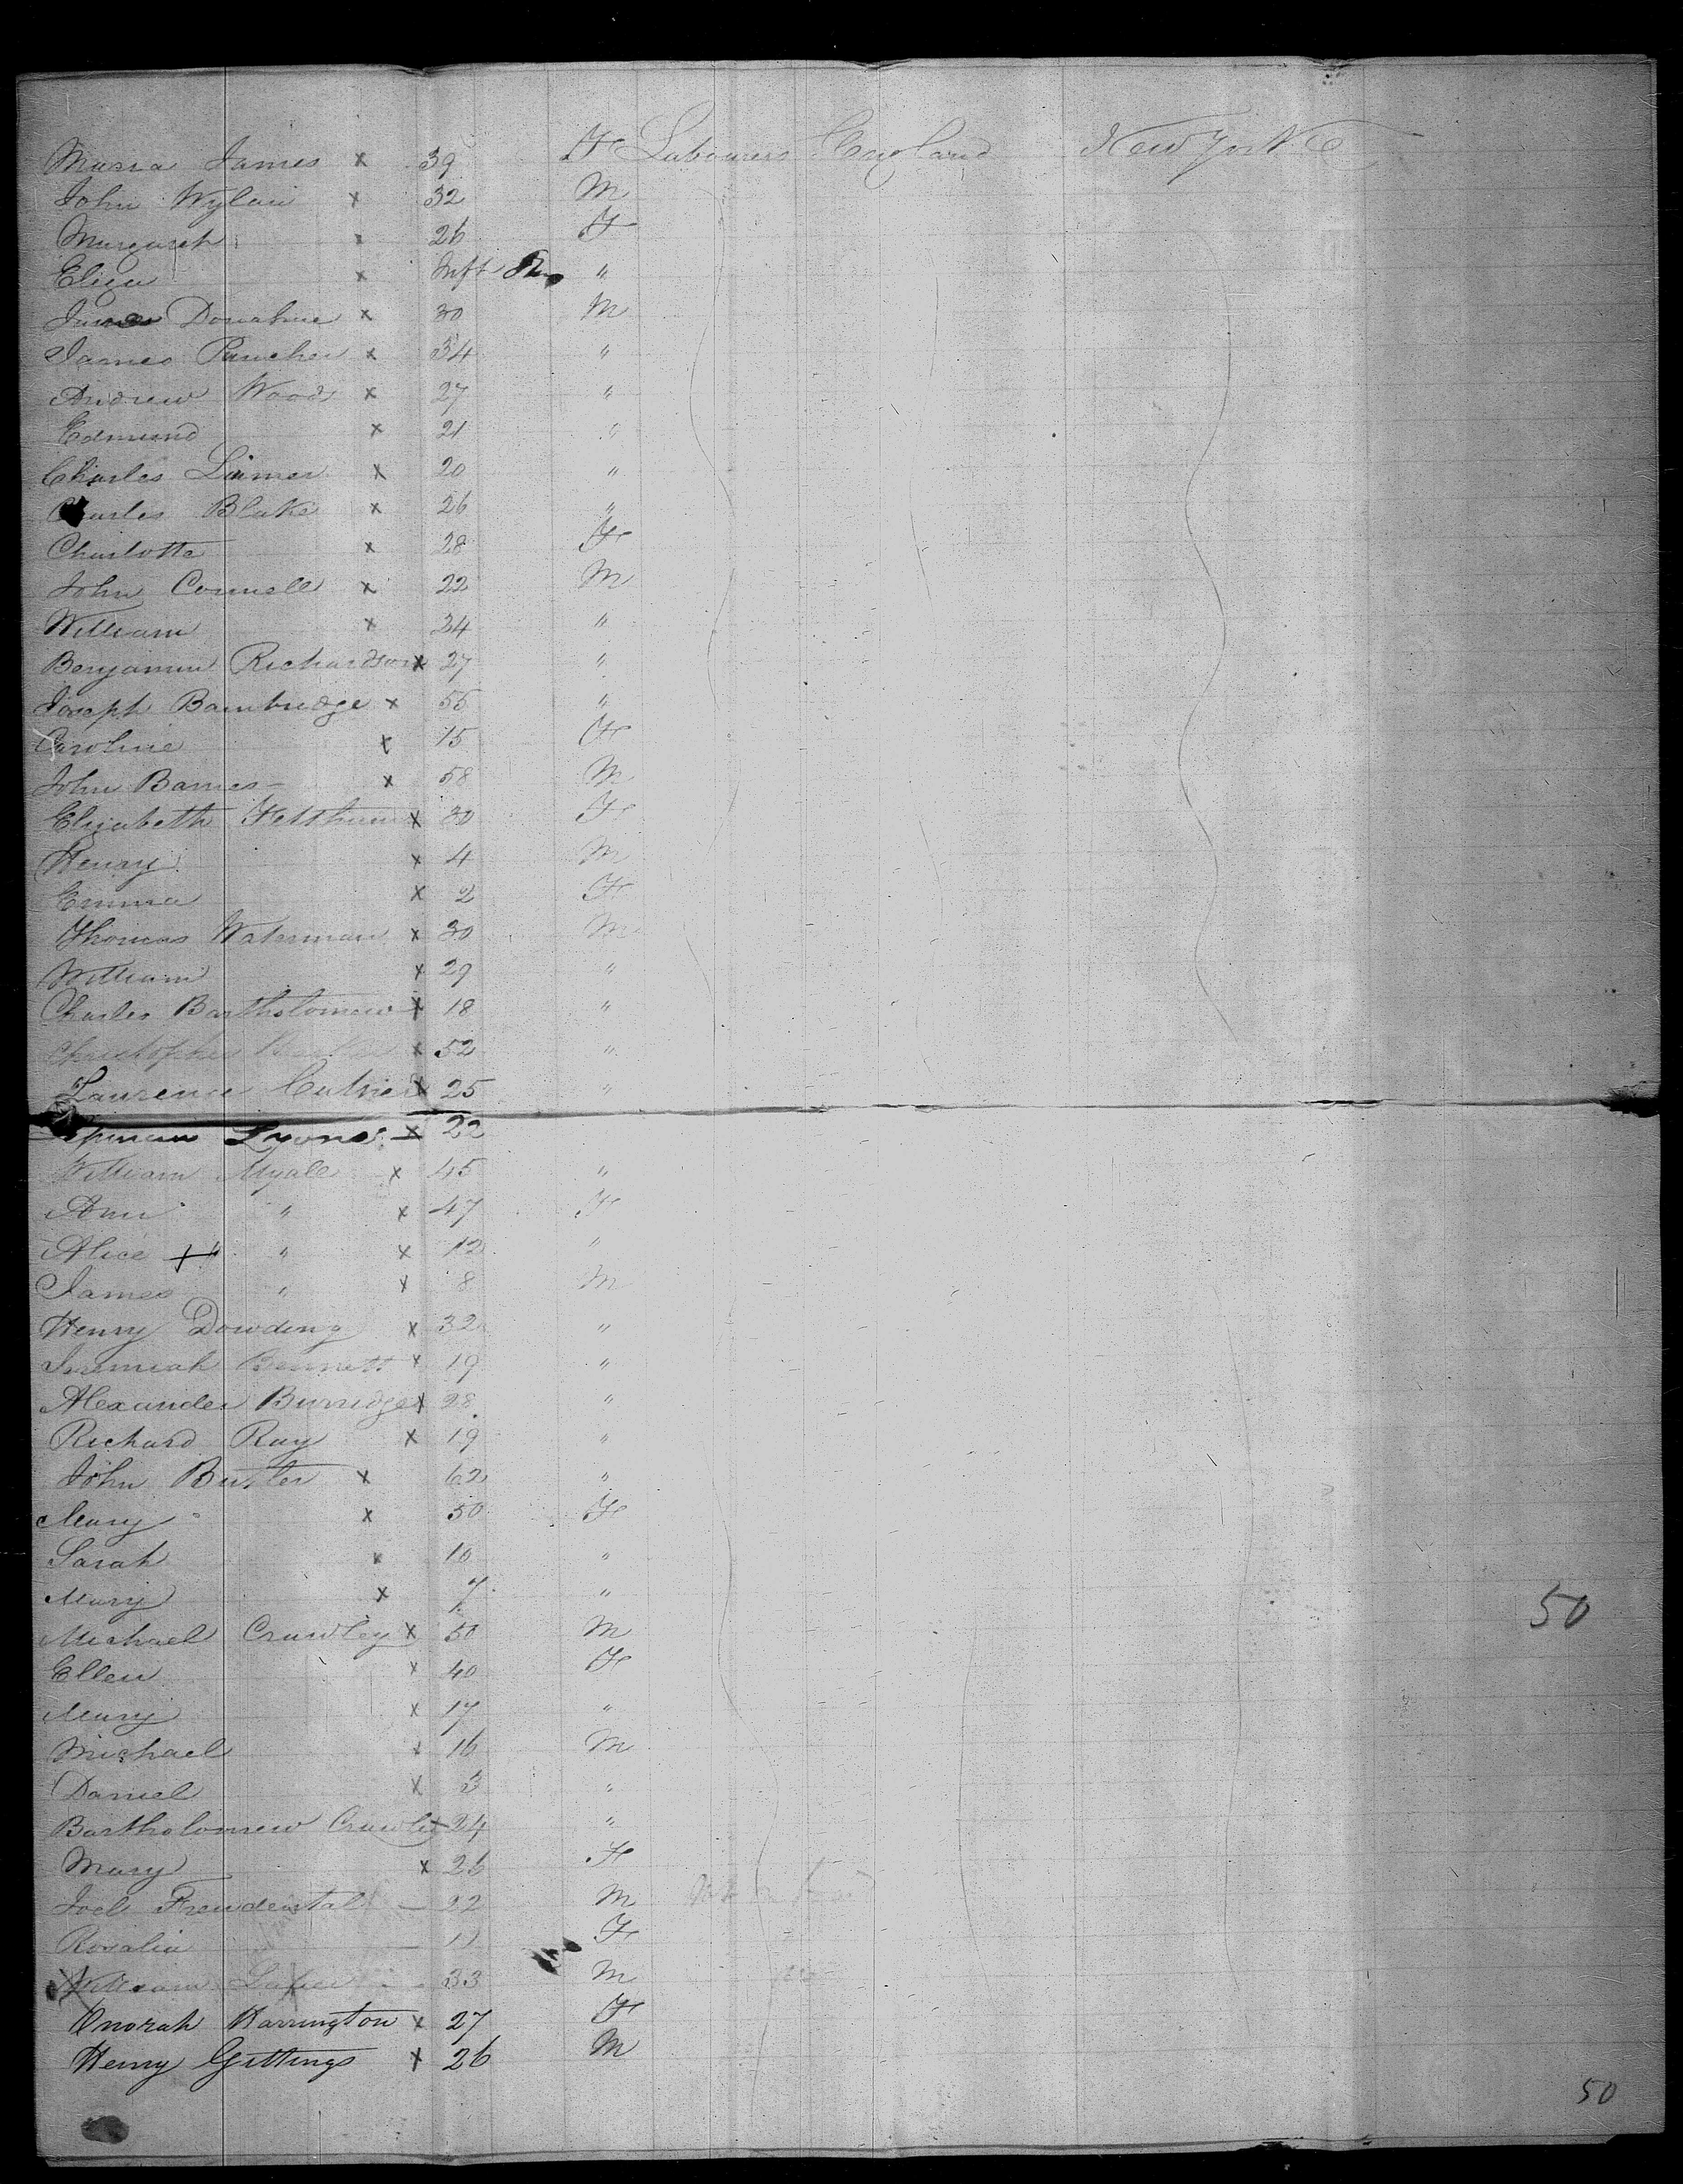 Maria James x 39 F Labourers England New York
John Wylan x 32 M
Margaret x 26 F
Eliza x Inft "
James Donahue x 30 M
James x 34 "
Andrew Woods x 27 "
Edmund x 21 "
Charles x 20 "
Charles Blake x 26 "
Charlotte x 28 F
John Connell x 22 M
William x 34 "
Benjamin Richardson x 27 "
Joseph Bambridge x 55 "
Caroline x 15 F
John Barnes x 58 M
Elizabeth Feltham x 30 F
Henry x 4 M
Emma x 2 F
Thomas Waterman x 30 M
William x 29 "
Charles Bartholomew x 18 "
Christopher x 52 "
Laurence x 25 "
Lyons x 22
William Myall x 45 "
Ann " x 47 F
Alice + " " x 12 "
James " x 8 M
Henry Dowding x 32 "
Jeremiah Bennett x 19 "
Alexander Burridge x 28 "
Richard Ray x 19 "
John Butler x 62 "
Mary " x 50 F
Sarah x 10 "
Mary x 7 "
50
Michael Crawley x 50 M
Ellen x 40 F
Mary x 17 "
Michael x 16 M
Daniel x 3 "
Bartholomew Crawley x 24 "
Mary x 26 F
Joel Freudental — 22 M
Rosalia — 11 F
x William - 33 M
Onorah Harrington x 27 F
Henry Gittings x 26 M
50